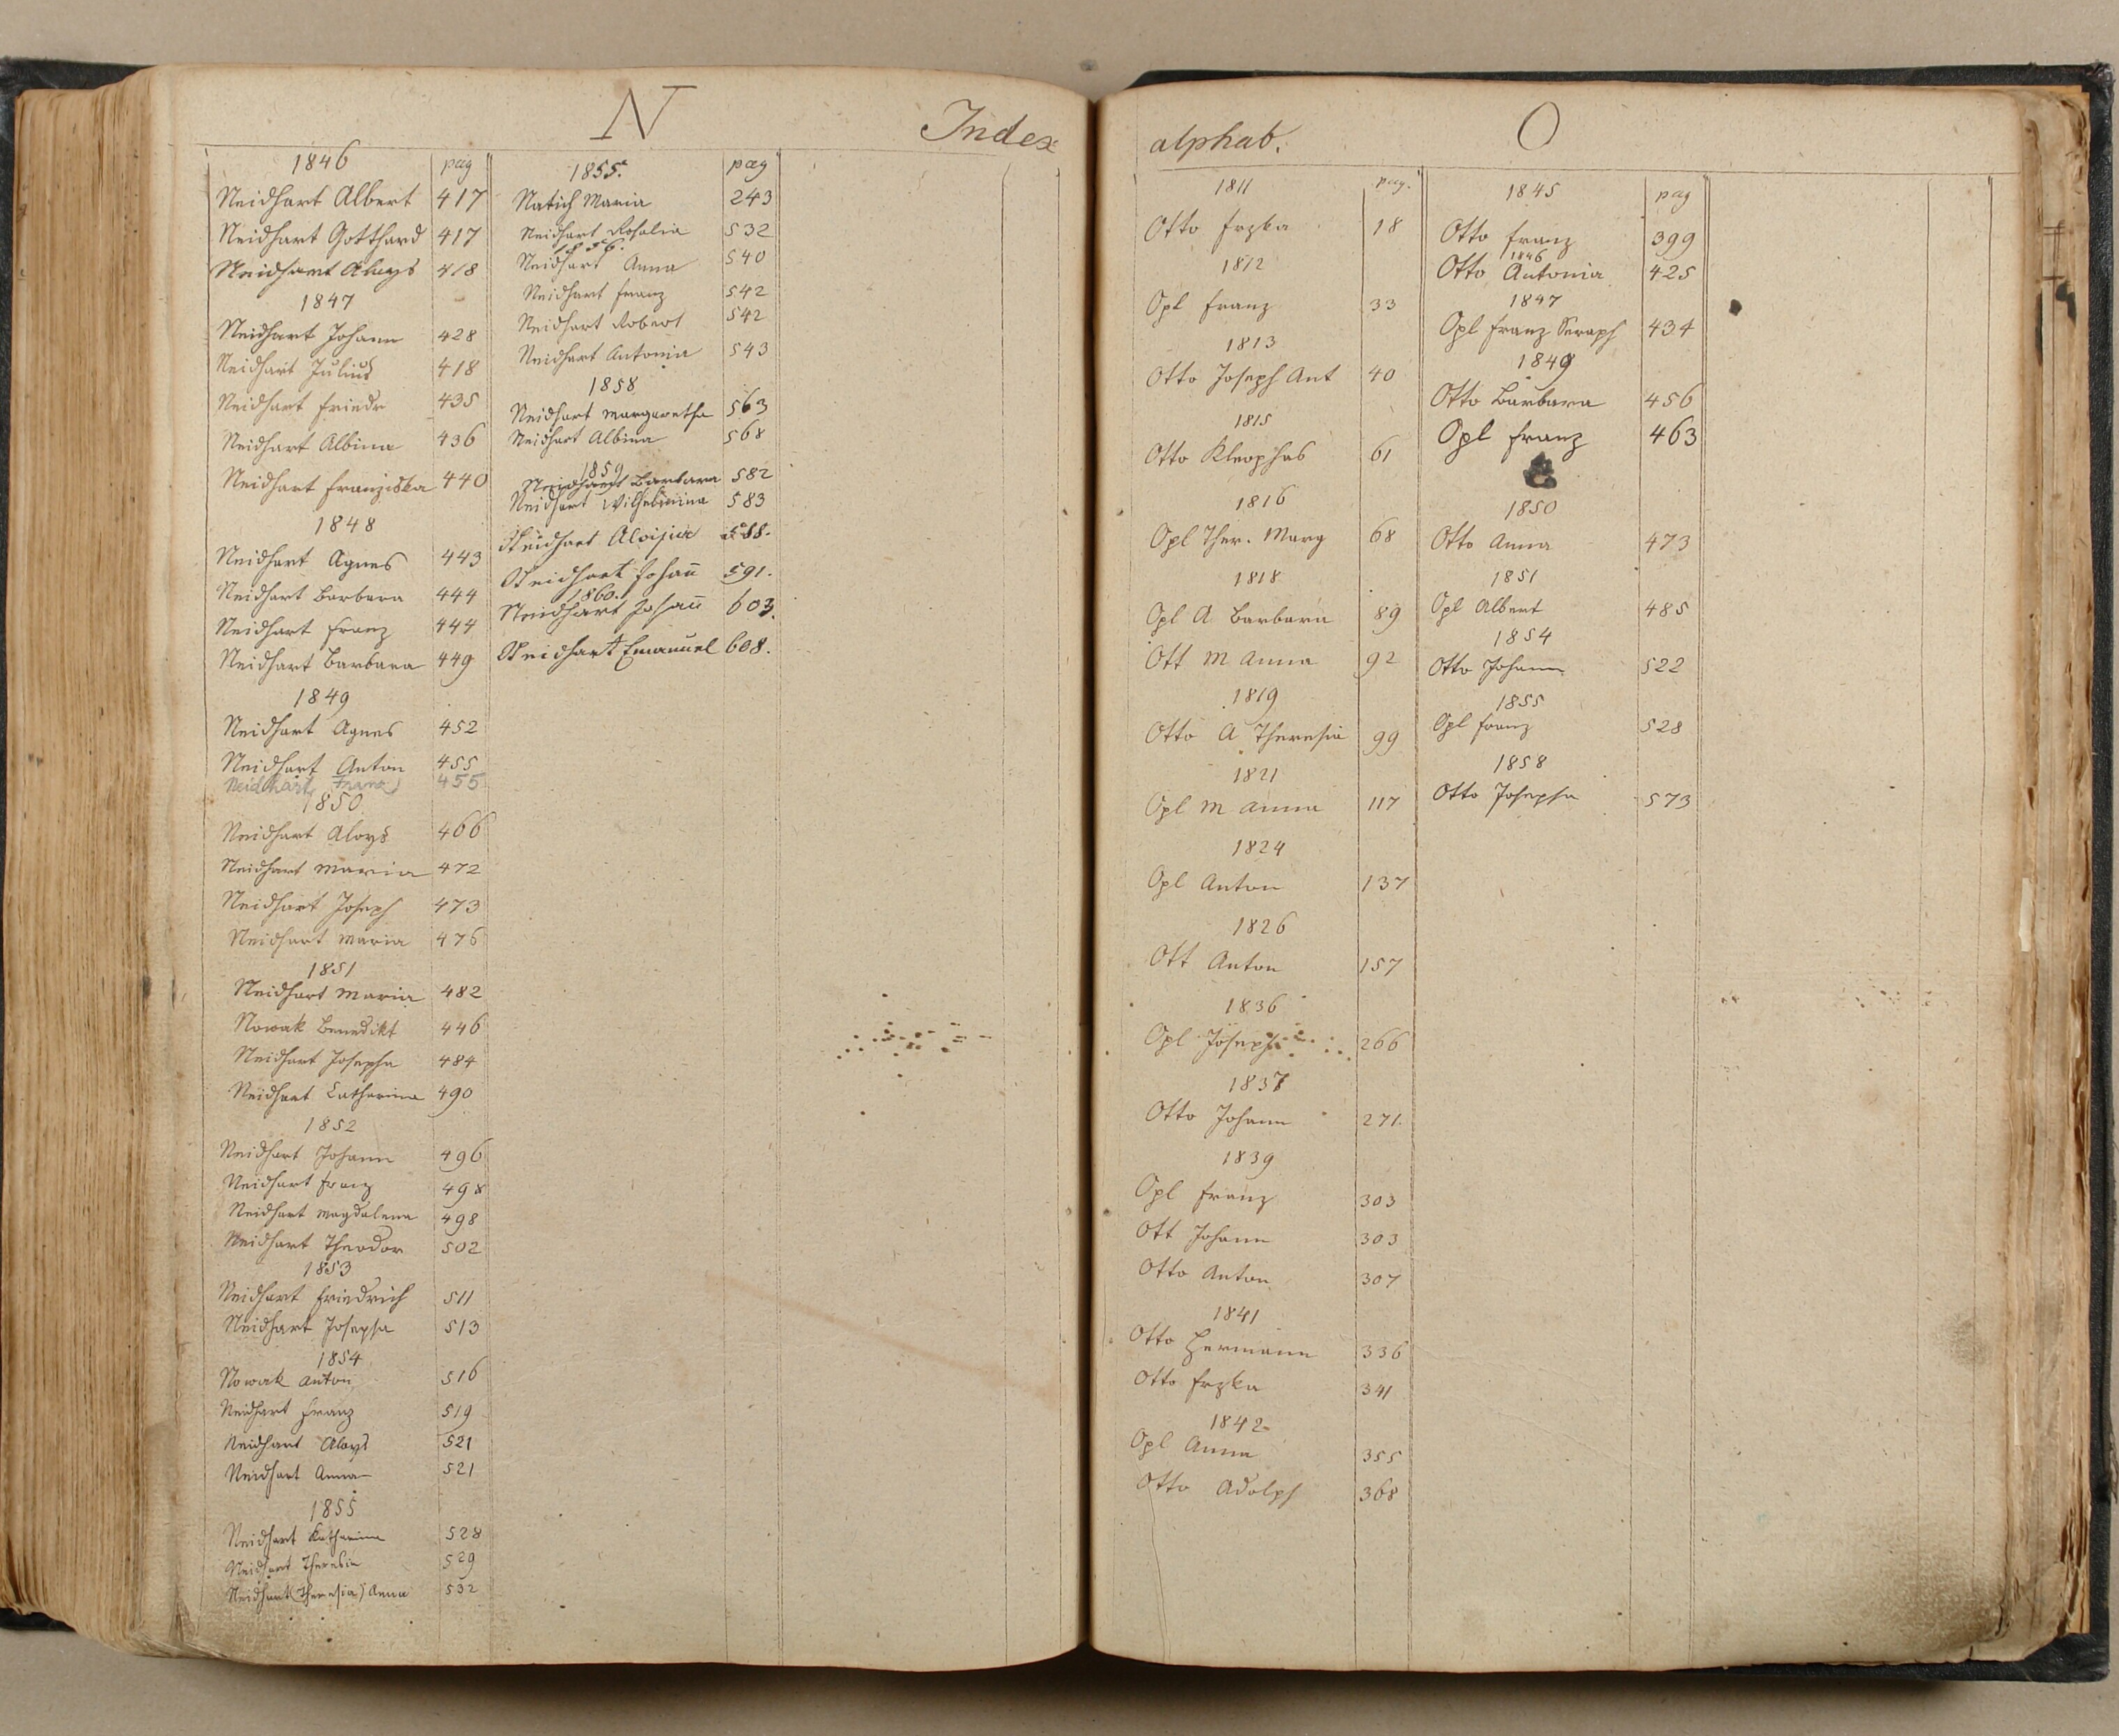 N
Index
1846 pag
Neidhart Albert 417
Neidhart Gotthard 417
Neidhart Aloys 418
1847
Neidhart Johann 428
Neidhart Julius 418
Neidhart Friedr 435
Neidhart Albina 436
Neidhart Franziska 440
1848
Neidhart Agnes 443
Neidhart Barbara 444
Neidhart Franz 444
Neidhart Barbara 449
1849
Neidhart Agnes 452
Neidhart Anton 455
Neidhart Franz 455
1850
Neidhart Aloys 466
Neidhart Maria 472
Neidhart Joseph 473
Neidhart Maria 476
1851
Neidhart Maria 482
Nowak Benedikt 446
Neidhart Josepha 484
Neidhart Catharina 490
1852
Neidhart Johann 496
Neidhart Franz 498
Neidhart Magdalena 498
Neidhart Theodor 502
1853
Neidhart Friedrich 511
Neidhart Josepha 513
1854
Nowak Anton 516
Neidhart Franz 519
Neidhart Aloys 521
Neidhart Anna 521
1855
Neidhart Katharina 528
Neidhart Theresia 529
Neidhart (Theresia) Anna 532
1855. pag
Natich Maria 243
Neidhart Rosalia 532
1856.
Neidhart Anna 540
Neidhart Franz 542
Neidhart Robert 542
Neidhart Antonia 543
1858
Neidhart Margaretha 563
Neidhart Albina 568
1859
Neidhart Barbara 582
Neidhart Wilhelmina 583
Neidhart Aloisia 588.
Neidhart Johann 591.
1860.
Neidhart Johann 603.
Neidhart Emanuel 608.
alphab.
O
1811 pag.
Otto Frzka 18
1812
Opl Franz 33
1813
Otto Joseph Ant 40
1815
Otto Kleophas 61
1816
Opl Ther. Marg 68
1818
Opl A Barbara 89
Ott M Anna 92
1819
Otto A Theresia 99
1821
Opl M Anna 117
1824
Opl Anton 137
1826
Ott Anton 157
1836
Opl Joseph 266
1837
Otto Johann 271.
1839
Opl Franz 303
Ott Johann 303
Otto Anton 307
1841
Otto Hermann 336
Otto Frzka 341
1842
Opl Anna 355
Otto Adolph 368
1845 pag
Otto Franz 399
1846
Otto Antonia 425
1847
Opl Franz Seraph 434
1849
Otto Barbara 456
Opl Franz 463
1850
Otto Anna 473
1851
Opl Albert 485
1854
Otto Johann 522
1855
Opl Franz 528
1858
Otto Josepha 573